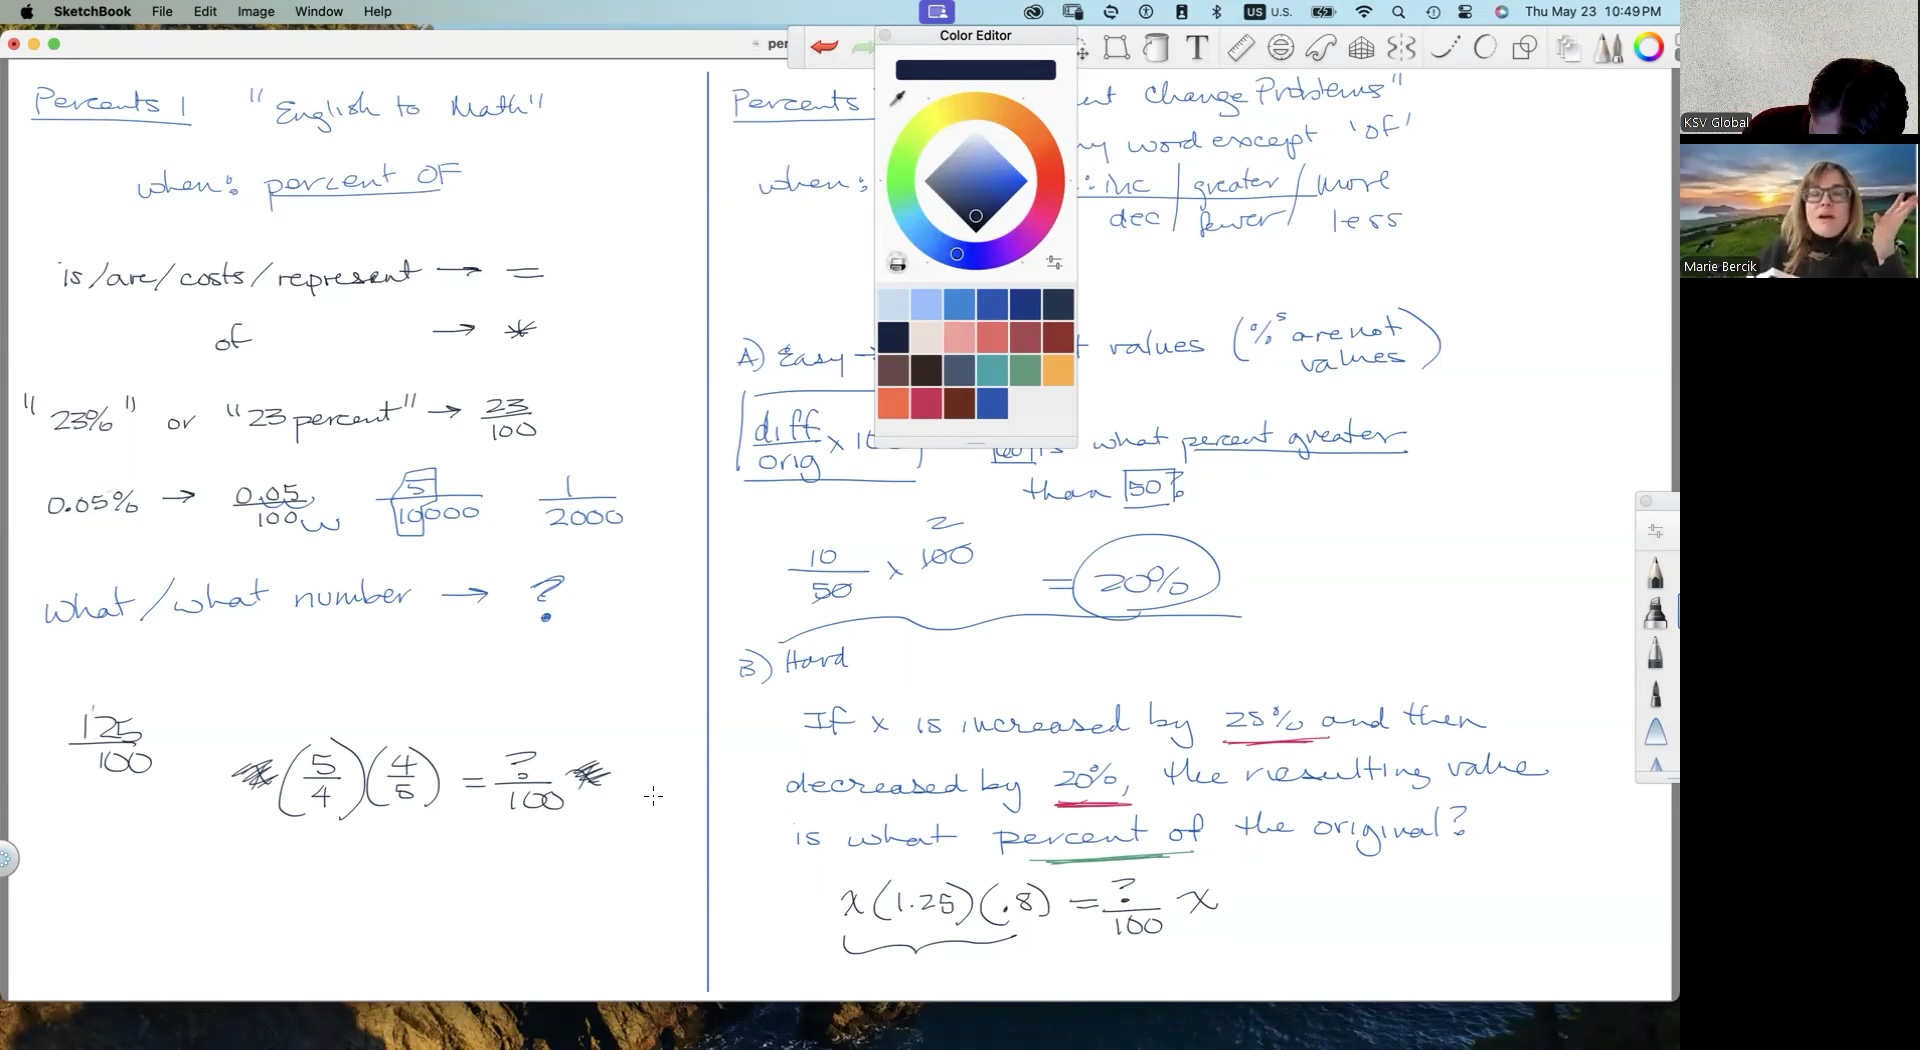 SketchBook File Edit Image Window Help
US U.S. Thu May 23 10:49 PM
per
Color Editor
T
Percents 1 "English to Math"
when: percent OF
is/are/costs/represent → =
of → *
"23%" or "23 percent" → 23/100
0.05% → 0.05/100 5/10000 1/2000
what/what number → ?
125/100
(5/4)(4/5) = ?/100
Percents
change Problems"
word except 'of'
when: : inc | greater / more
dec | fewer / less
A) Easy → values (%s are not values)
diff/orig x
what percent greater
than 50?
10/50 x 100 2 = 20%
B) Hard
If x is increased by 25% and then
decreased by 20%, the resulting value
is what percent of the original?
x(1.25)(.8) = ?/100 x
KSV Global
Marie Bercik